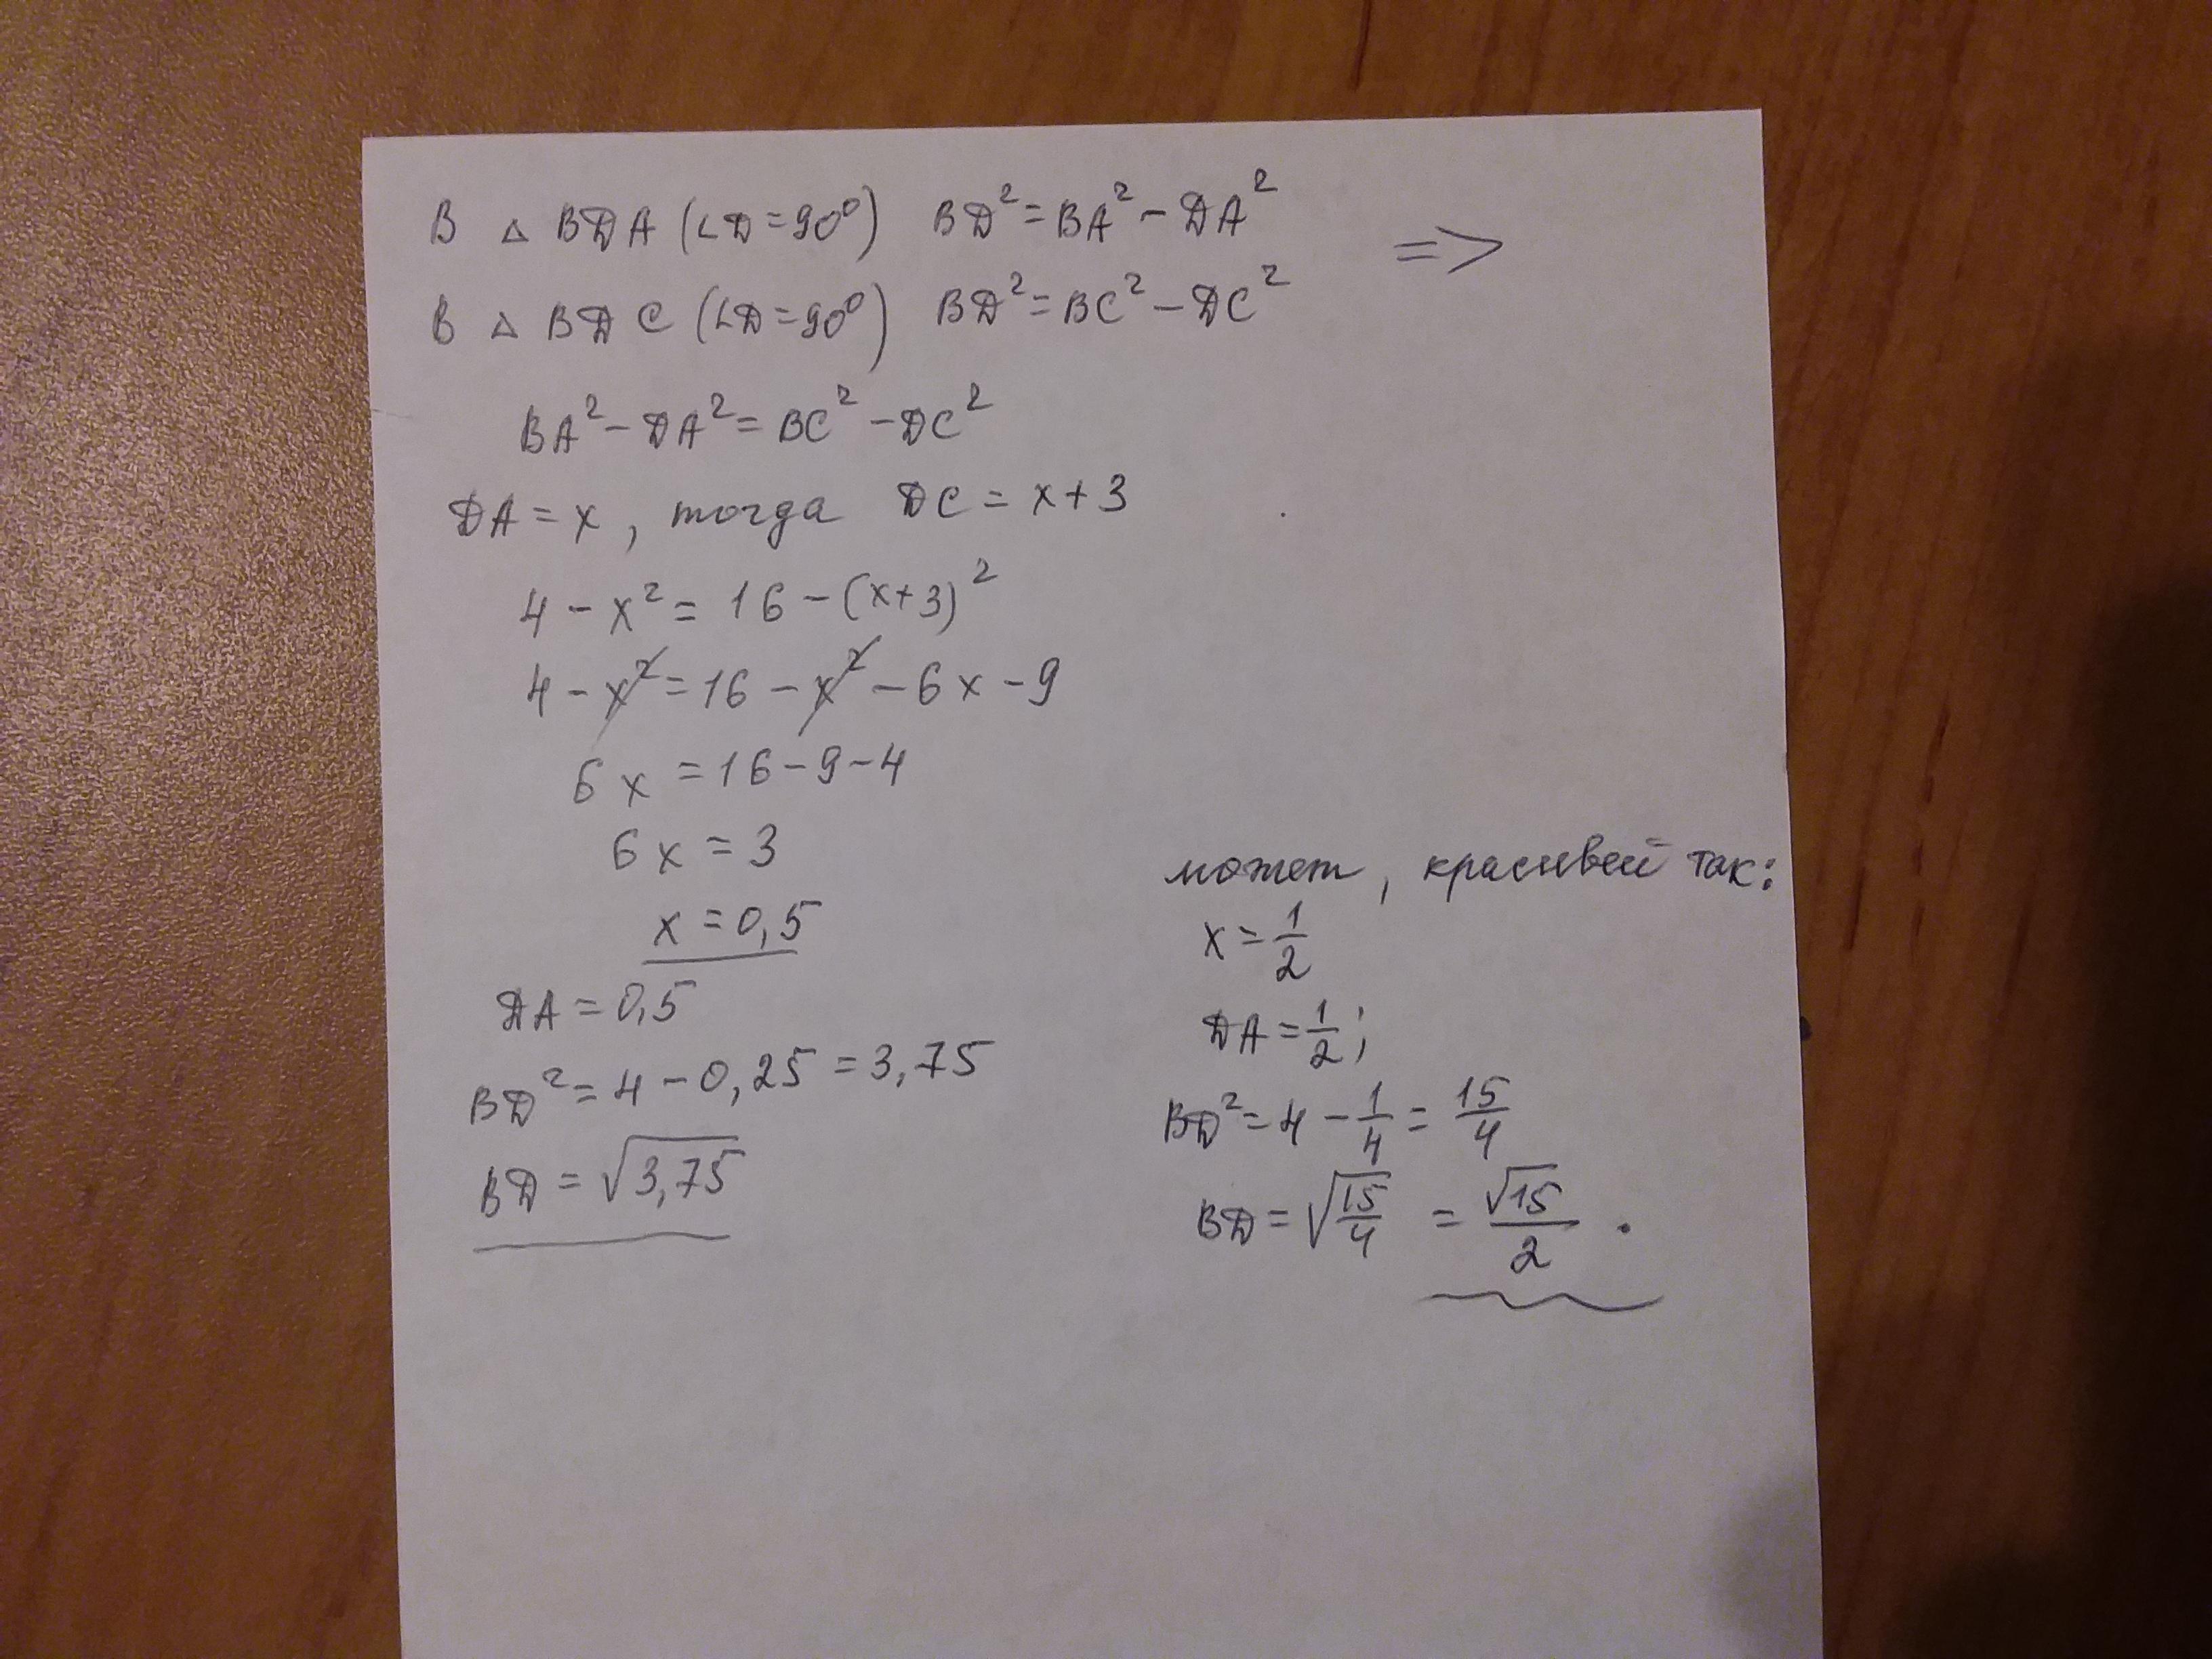 В △ BDA (∠D=90°) BD²=BA²-DA²
=>
В △ BDC (∠D=90°) BD²=BC²-DC²
BA²-DA²=BC²-DC²
DA=x, тогда DC=x+3
4-x²=16-(x+3)²
4-x²=16-x²-6x-9
6x=16-9-4
6x=3
x=0,5
DA=0,5
BD²=4-0,25=3,75
BD=√3,75
может, красивей так:
x=1/2
DA=1/2;
BD²=4-1/4=15/4
BD=√15/4=√15/2.